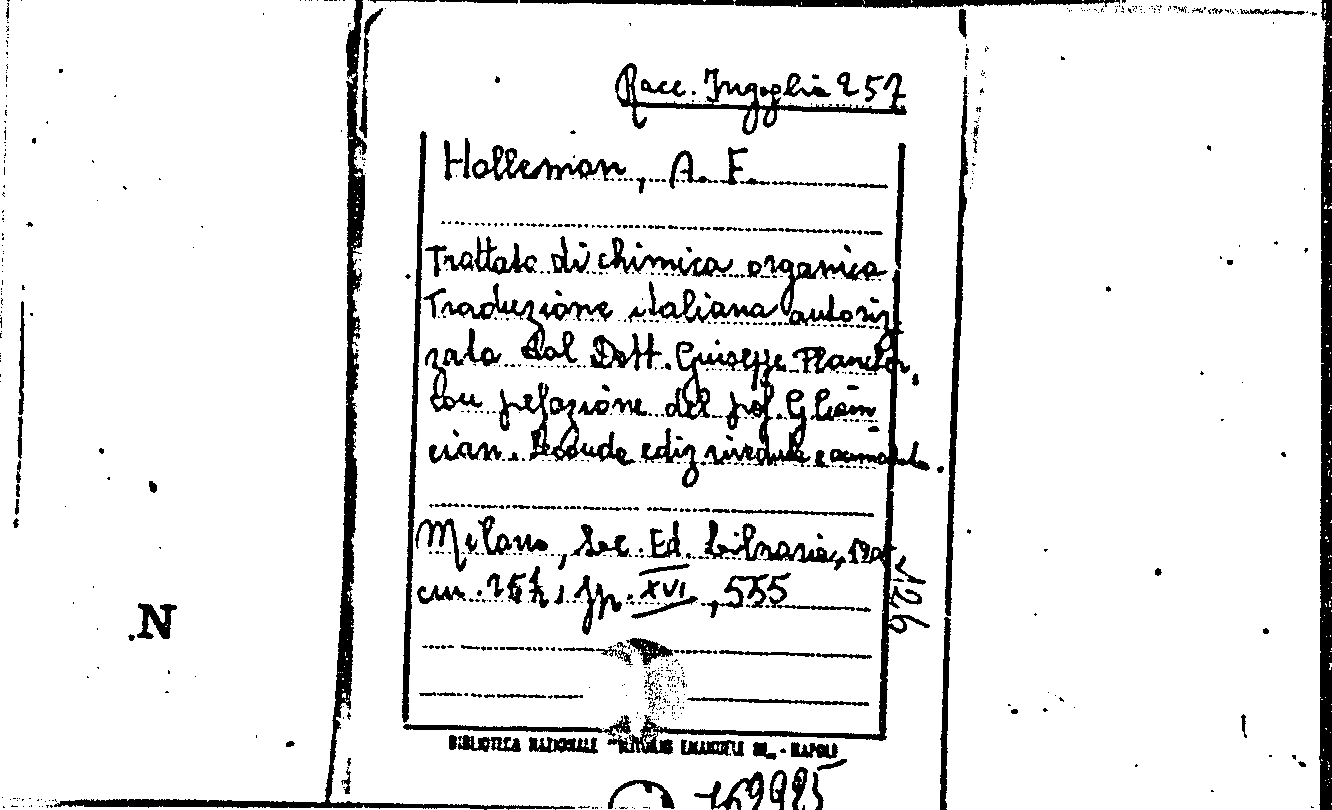 Racc. Ingoglia 257
Holleman, A. F.
Trattato di chimica organica
Traduzione italiana autoriz
zata dal Dott. Giuseppe Plancher,
Con pefazione del prof. G. Ciam
cian. Seconda ediz riveduta e aumentata.
Milano, Soc. Ed. Libraria,
cm. , pp. XVI, 555
N
BIBLIOTECA NAZIONALE "VITTORIO EMANUELE III„ - NAPOLI
169925